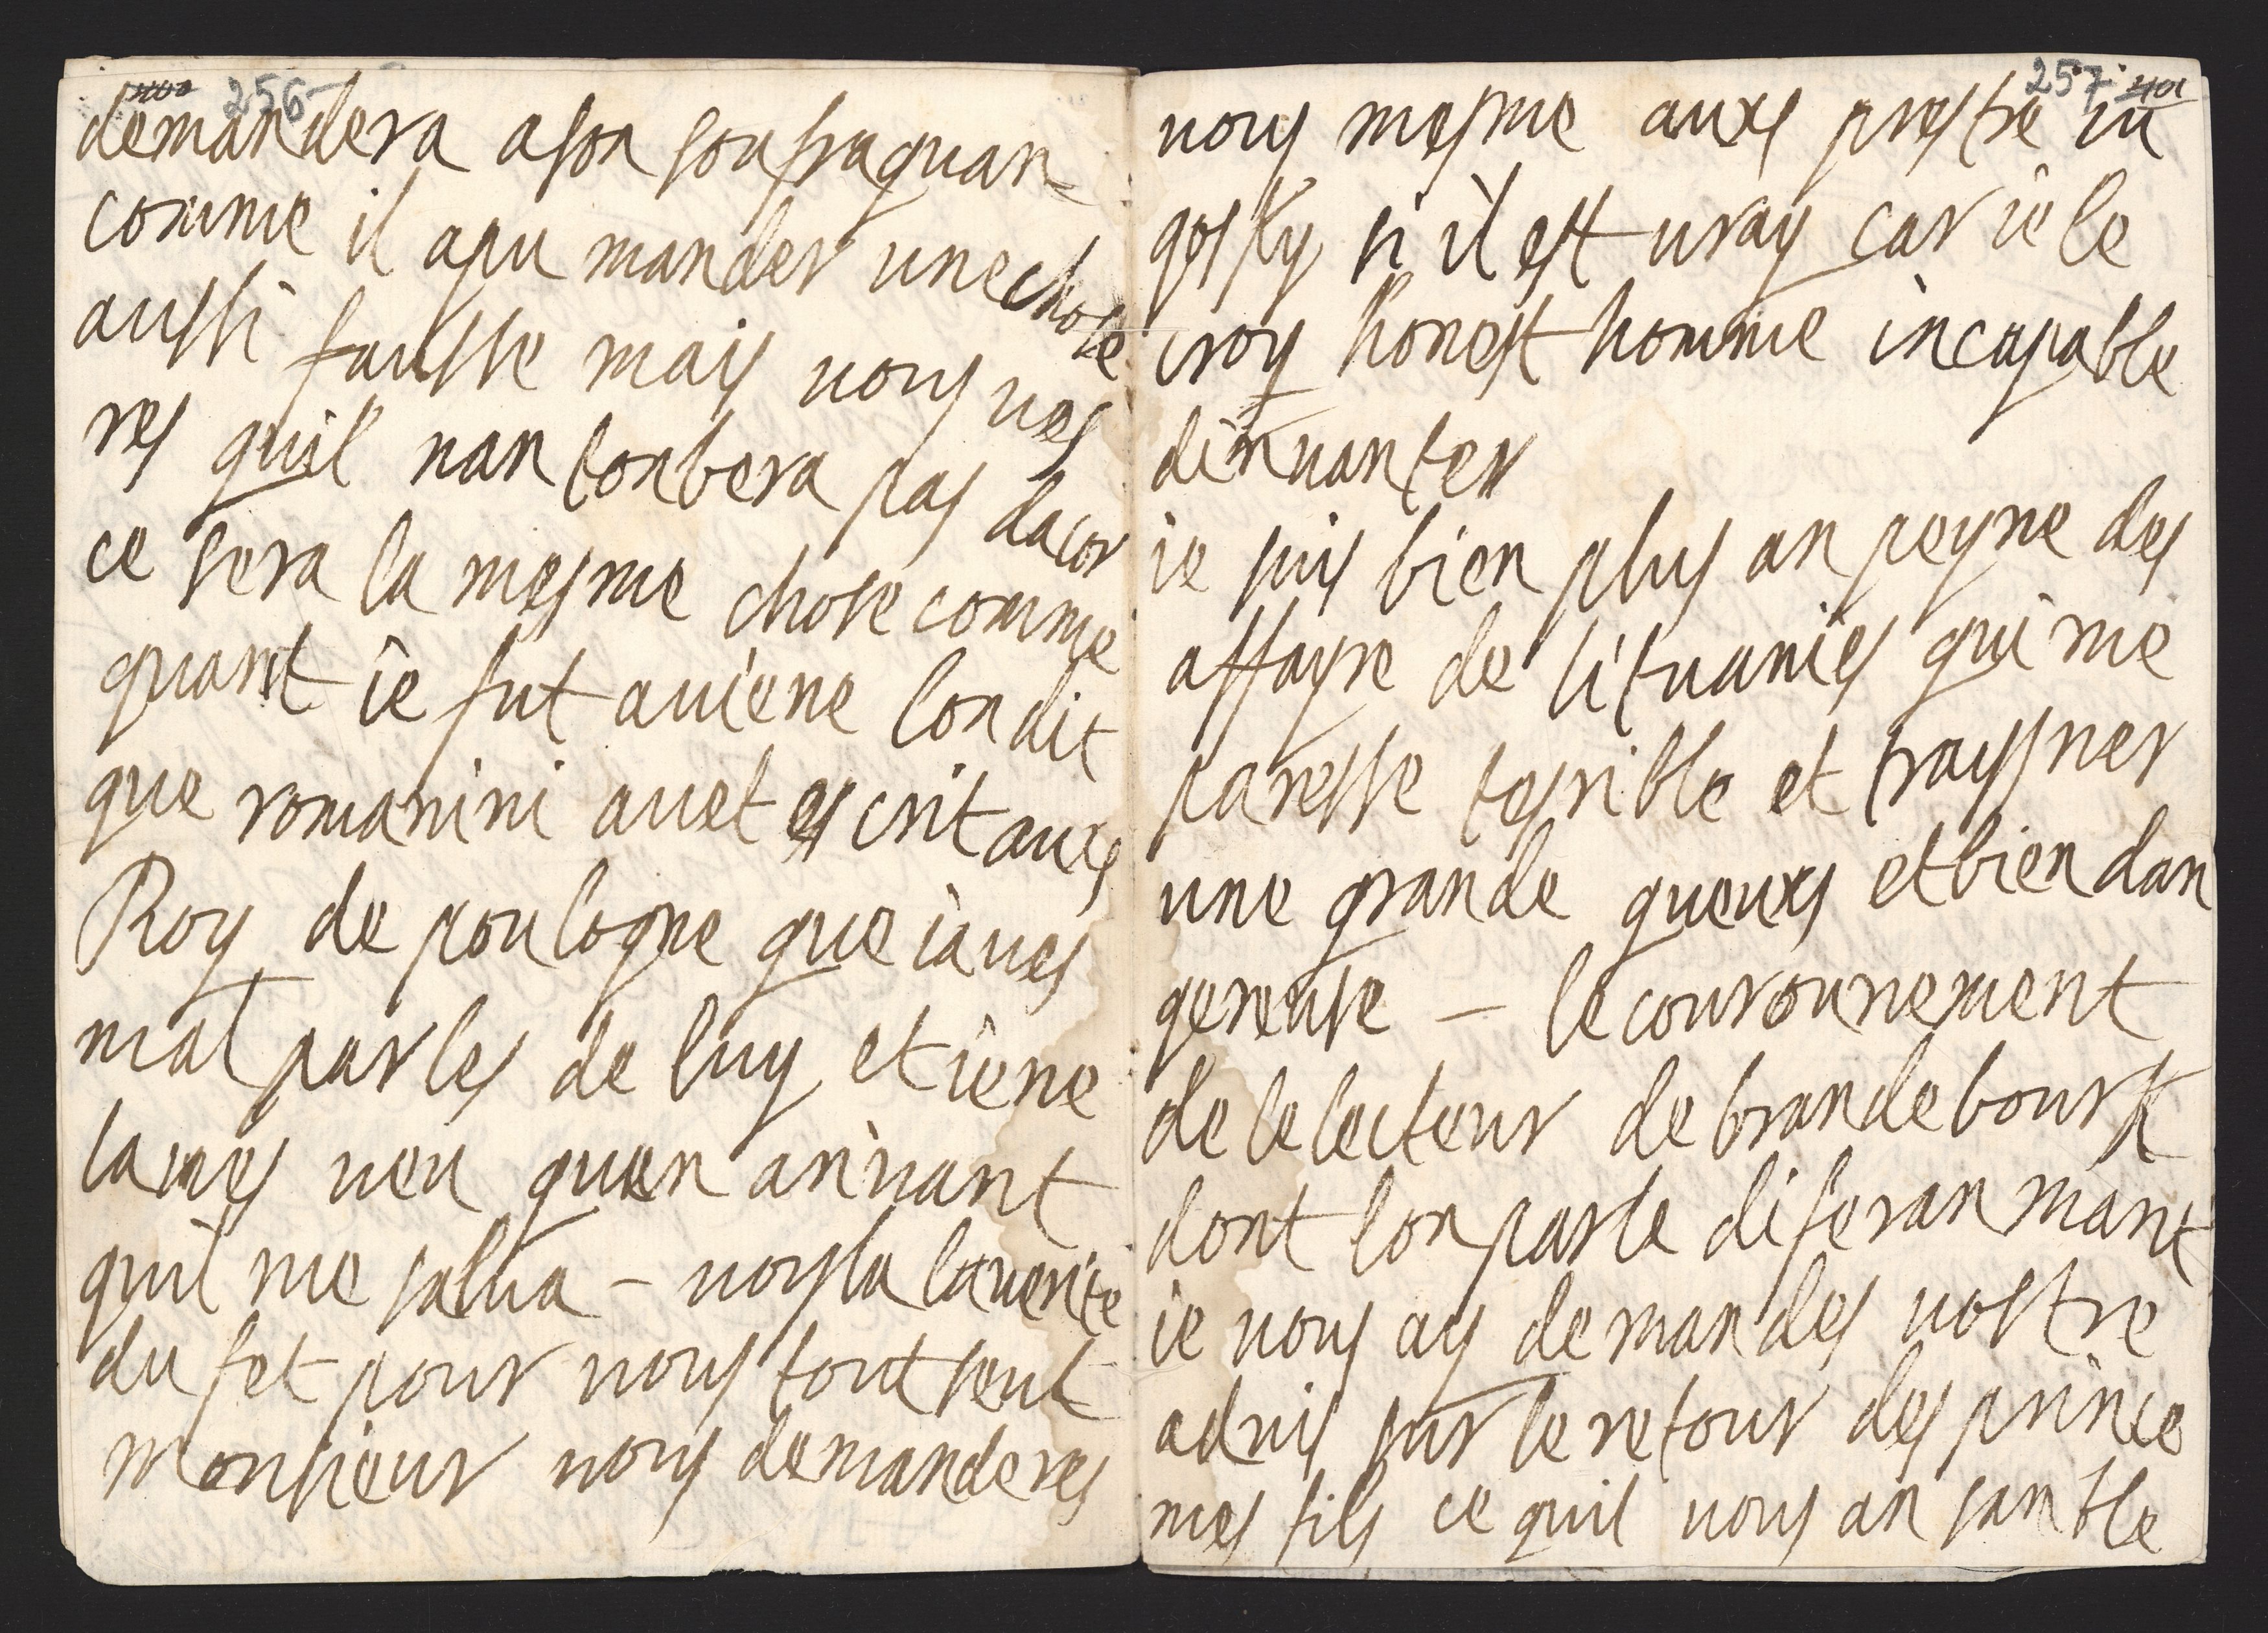 256
demandera ason soufraguan
comme il apu mander une chose
aussi fausse mais vous ver
res quil nan tonbera pas dacor
ce sera la mesme chose comme
quant ie fut auiene lon dit
que romanini auet escrit aux
Roy de poulogne que iaues
mal parles de luy et iene
laues veu quen ariuant
quil me salua – voysla laverite
du fet pour vous tout seul
monsieur vous demanderes
257 401
vous mesme auxs prestre
gosky si il est vray car ie le
croy honest homme incapable
dinuanter
ie suis bien plus an peyne des
affayre de lituanies qui me
paresse tesrible et traysner
une grande queuxs et bien dan
gereuse – le couronnement
de lelecteur de brandebourk
dont lon parle diferanmant
ie vous ay demandes vostre
advis sur le retour des prince
mes fils ce quil vous an sanble